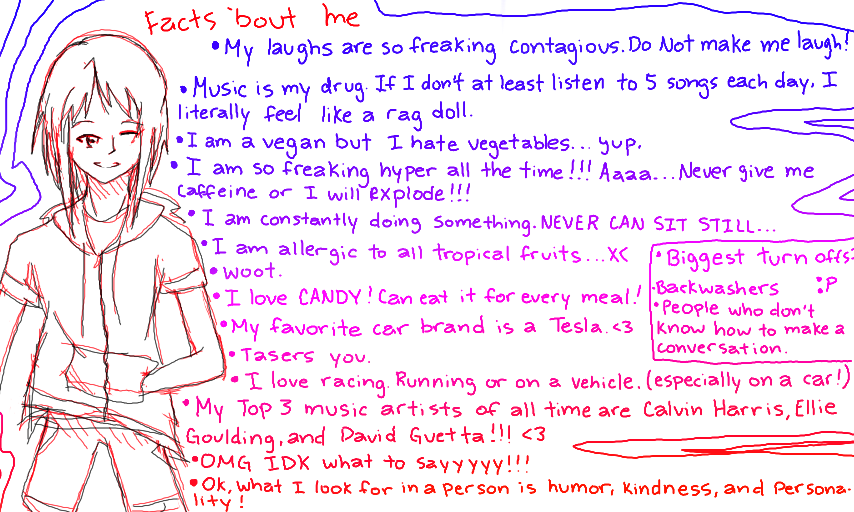 Facts 'bout me
• My laughs are so freaking contagious. Do Not make me laugh!
• Music is my drug. If I don't at least listen to 5 songs each day, I
literally feel like a rag doll.
• I am a vegan but I hate vegetables... yup.
• I am so freaking hyper all the time!!! Aaaa... Never give me
caffeine or I will explode!!!
• I am constantly doing something. NEVER CAN SIT STILL...
• I am allergic to all tropical fruits... X(
• woot.
• I love CANDY! Can eat it for every meal!
• My favorite car brand is a Tesla. <3
• Tasers you.
• I love racing. Running or on a vehicle. (especially on a car!)
• My Top 3 music artists of all time are Calvin Harris, Ellie
Goulding, and David Guetta!!! <3
• OMG IDK what to sayyyyy!!!
• Ok, what I look for in a person is humor, kindness, and persona-
lity!
• Biggest turn offs?
• Backwashers :P
• People who don't
know how to make a
conversation.